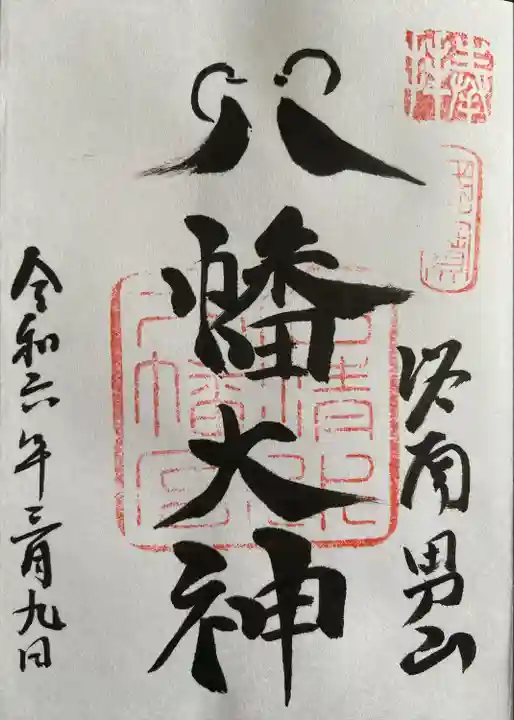 奉拝
洛南男山
八幡大神
石清水
八幡宮
令和六年三月九日